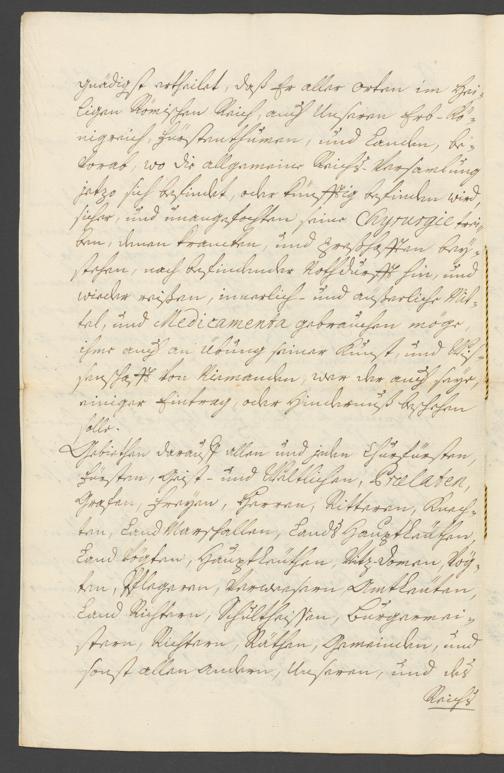 gnädigst ertheilet, daß Er aller orten im Hei-
ligen Römischen Reich, auch Unseren Erb-Kö-
nigreich, Fürstenthumen, und Landen, be-
vorab, wo die allgemeine Reichs-Versamlung
jetzo sich befindet, oder künfftig befinden wird,
sicher, und unangefochten seine Chyrurgie trei-
ben, denen krancken, und presthafften bey-
stehen, nach befindender Nothdurfft hin, und
wieder reißen, innerlich- und äußerliche Mit-
tel, und Medicamenta gebrauchen möge,
ihme auch an Übung seiner Kunst, und Wis-
senschafft von Niemanden, wer der auch seye,
einiger Eintrag, oder Hindernuß beschehen
solle.
Gebiethen darauff allen und jeden Churfürsten,
Fürsten, Geist- und Weltlichen, Prelaten,
Grafen, Freyen, Herren, Ritteren, Knech-
ten, Land Marschallen, Lands Hauptleüthen,
Land Vögten, Hauptleüthen, Vitzdomen, Vög-
ten, Pflegeren, Verweseren, Amtleüten,
Land Richtern, Schultheissen, Burgermei-
stern, Richtern, Räthen, Gemeinden, und
sonst allen andern, Unseren, und des
Reichs